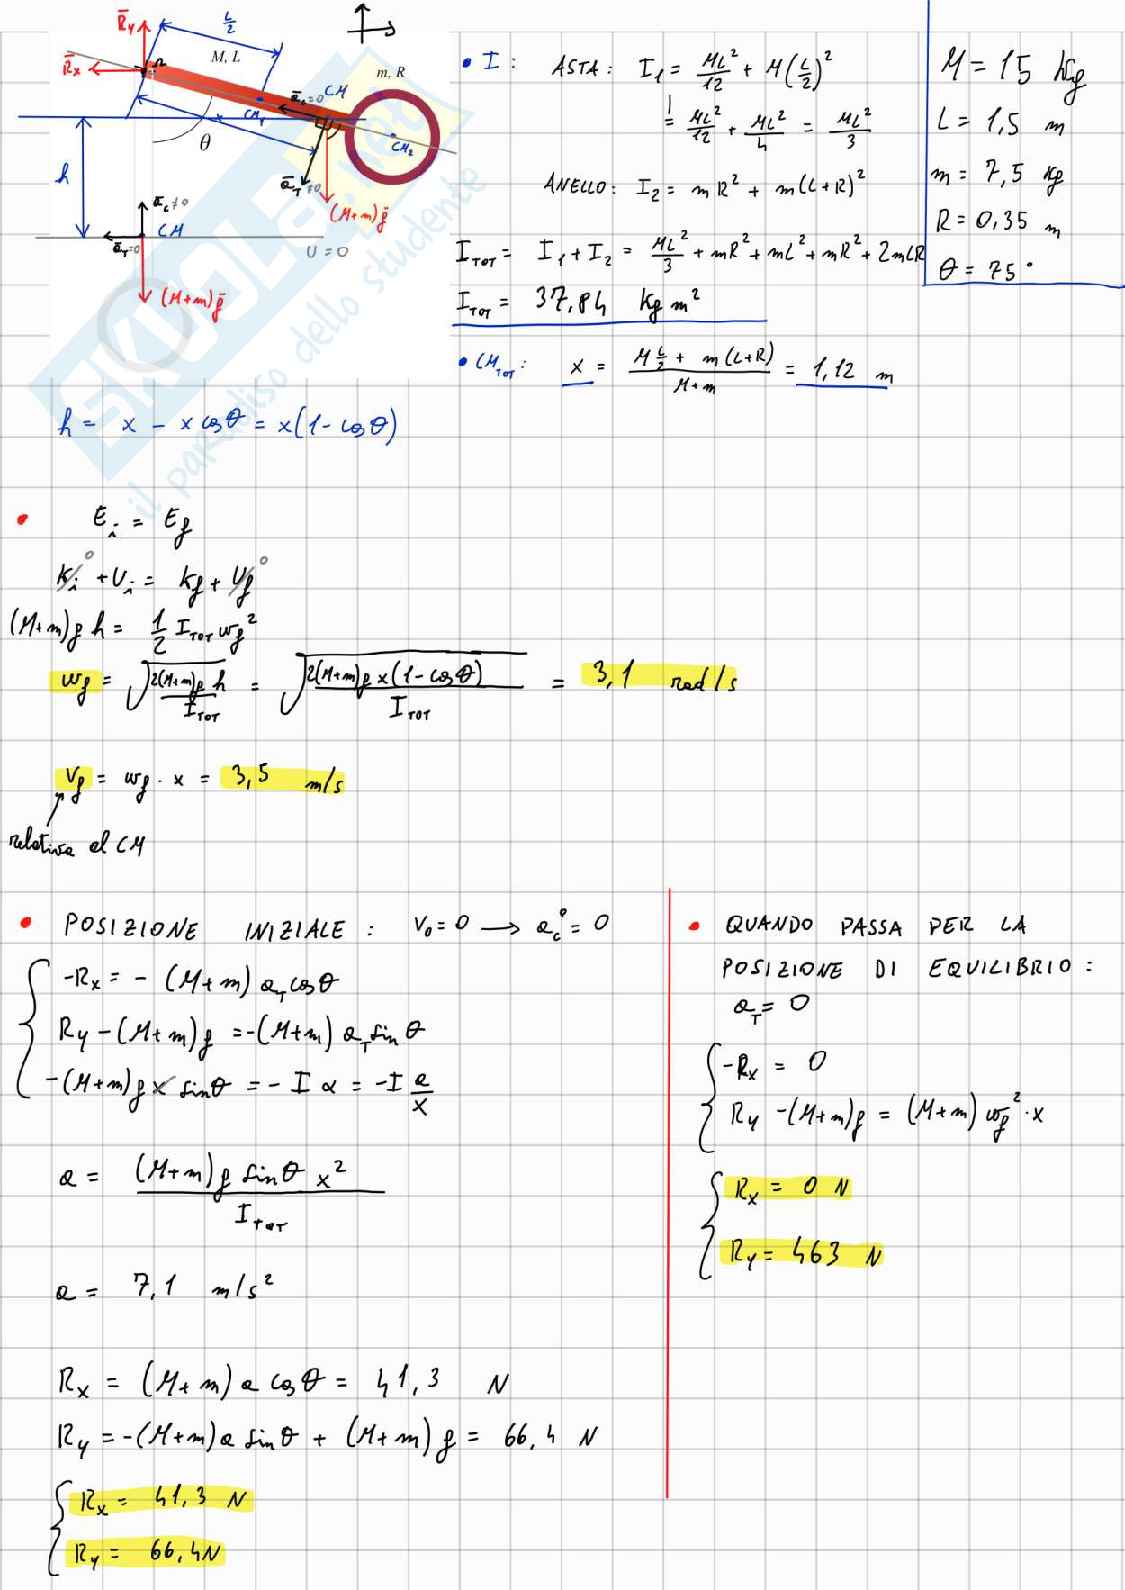 R̄y
L/2
R̄x
Ω
M, L
m, R
ā_c=0 CM
CM₁
CM₂
θ
h
ā_T≠0
(M+m)ḡ
ā_c≠0
CM
ā_T=0
U = 0
(M+m)ḡ
SKUOLA.net
il paradiso dello studente
• I : ASTA: I₁ = ML²/12 + M(L/2)²
= ML²/12 + ML²/4 = ML²/3
ANELLO: I₂ = mR² + m(L+R)²
I_TOT = I₁ + I₂ = ML²/3 + mR² + mL² + mR² + 2mLR
I_TOT = 37,84 kg m²
• CM_TOT: x = (M L/2 + m(L+R))/(M+m) = 1,12 m
M = 15 kg
L = 1,5 m
m = 7,5 kg
R = 0,35 m
θ = 75°
h = x - x cosθ = x(1 - cosθ)
• E_i = E_f
K_i⁰ + U_i = K_f + U_f⁰
(M+m)g h = 1/2 I_TOT ω_f²
ω_f = √(2(M+m)g h / I_TOT) = √(2(M+m)g x(1-cosθ) / I_TOT) = 3,1 rad/s
V_f = ω_f · x = 3,5 m/s
relativa al CM
• POSIZIONE INIZIALE : V₀ = 0 → a_c⁰ = 0
-Rx = - (M+m) a_T cosθ
Ry - (M+m)g = -(M+m) a_T sinθ
-(M+m)g x sinθ = - I α = - I a/x
a = (M+m)g sinθ x² / I_TOT
a = 7,1 m/s²
Rx = (M+m) a cosθ = 41,3 N
Ry = -(M+m) a sinθ + (M+m)g = 66,4 N
Rx = 41,3 N
Ry = 66,4 N
• QUANDO PASSA PER LA
POSIZIONE DI EQUILIBRIO :
a_T = 0
-Rx = 0
Ry - (M+m)g = (M+m) ω_f² · x
Rx = 0 N
Ry = 463 N